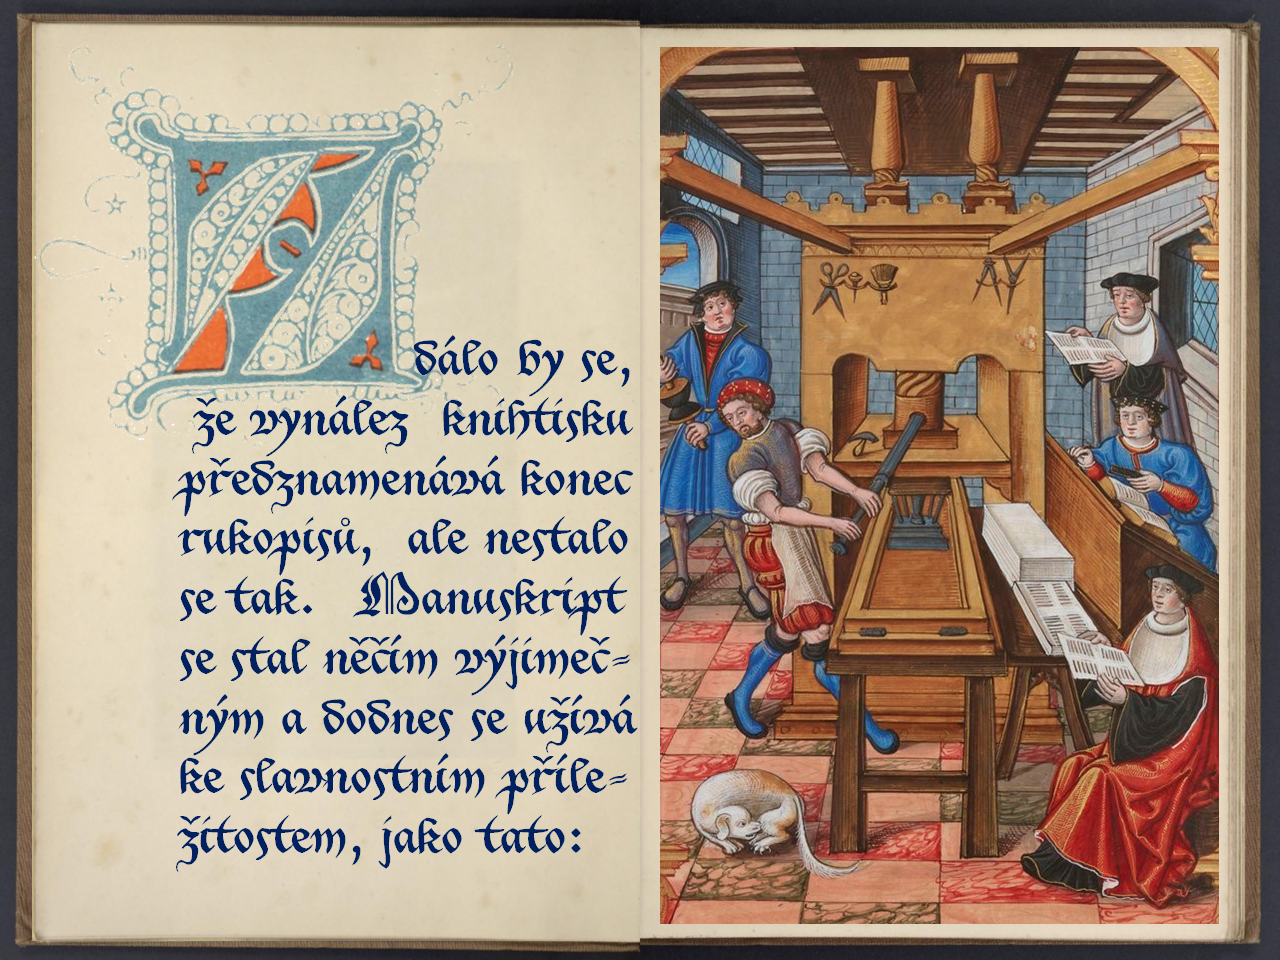 Zdálo by se,
že vynález knihtisku
předznamenává konec
rukopisů, ale nestalo
se tak. Manuskript
se stal něčím výjimeč-
ným a dodnes se užívá
ke slavnostním příle-
žitostem, jako tato: